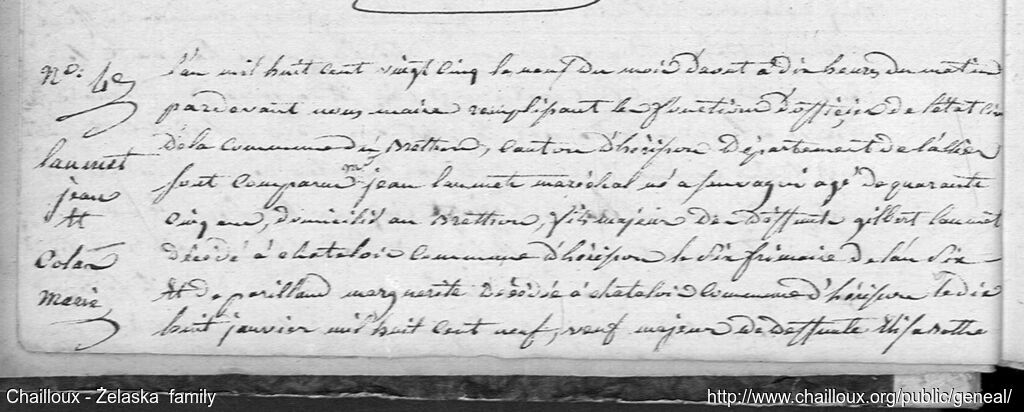 No. 4
laumet
jean
et
Colas
Marie
l'an mil huit cent vingt cinq le neuf du mois d'aout a dix heures du matin
pardevant nous maire remplisant les fonctions d'officier de l'état civ
de la commune du Brethon, canton d'hérisson département de l'allier
sont comparus mr jean laumet maréchal né a sauvagni agé de quarante
cinq ans, domicilié au Brethon, fils majeur des deffunts gilbert laumet
décédé à chateloix commune d'hérisson le six frimaire de l'an six
et de parilland marguerite décédée à chateloix commune d'hérisson le dix
huit janvier mil huit cent neuf, veuf majeur de deffunte élisabethe
Chailloux - Želaska family
http://www.chailloux.org/public/geneal/